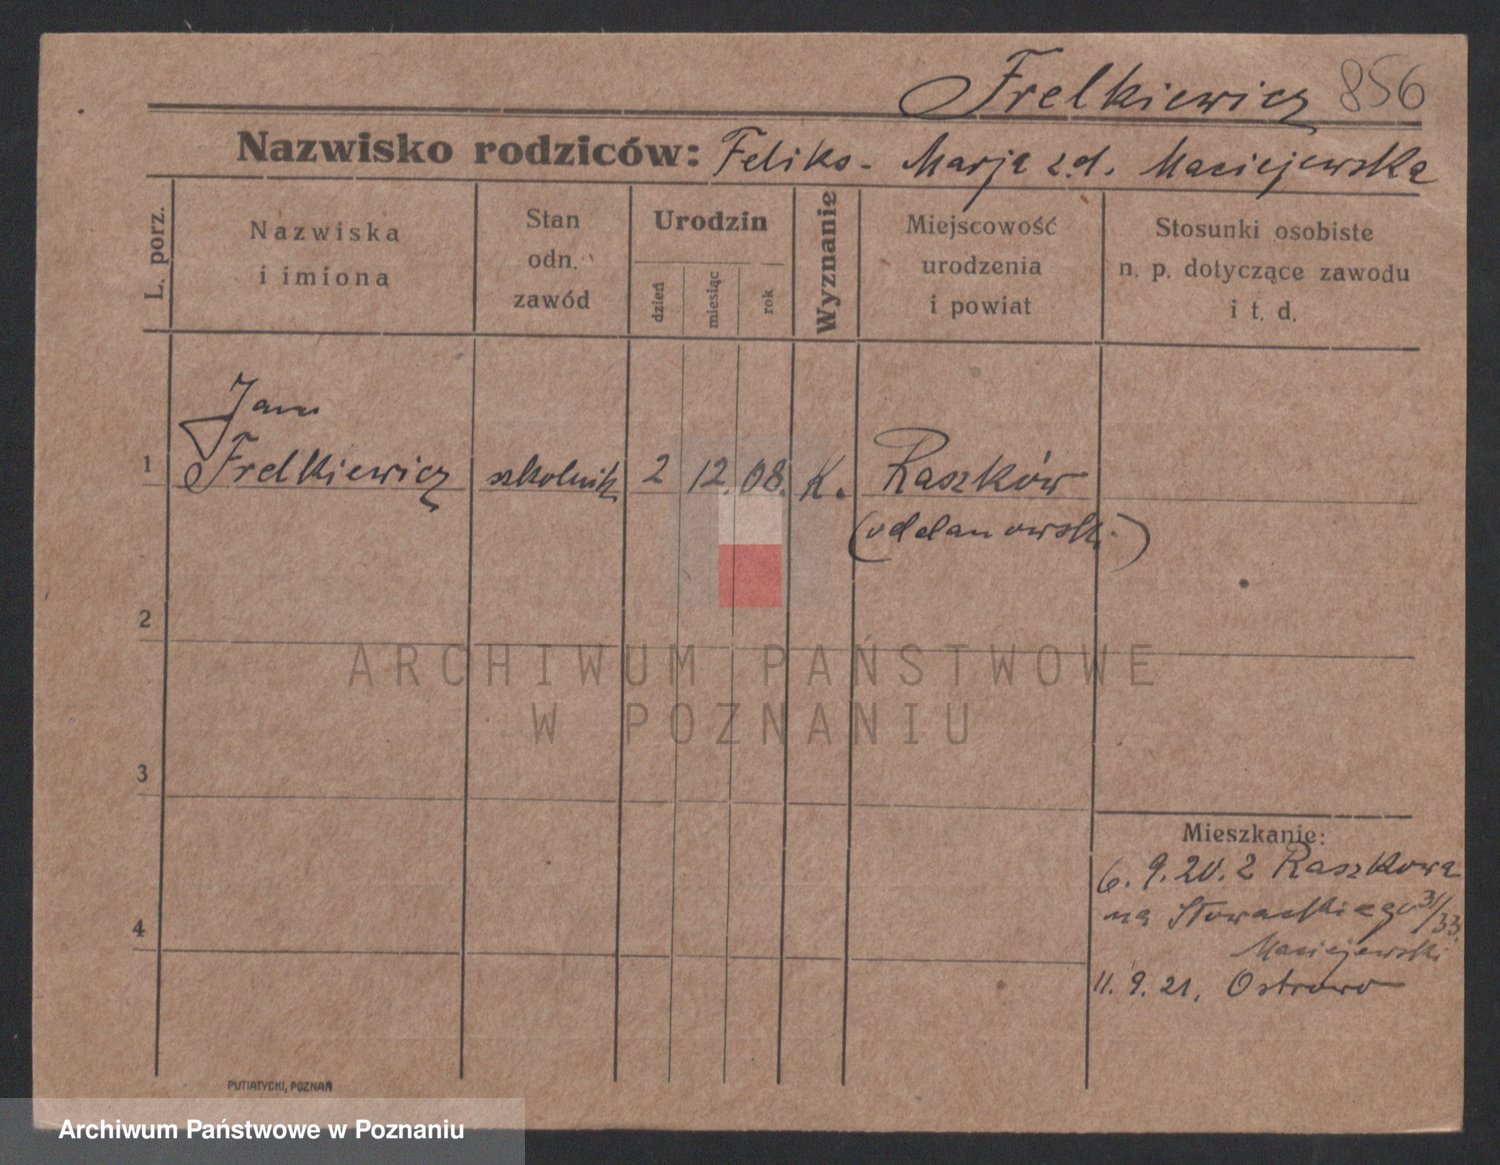 Frelkiewicz 856
Nazwisko rodziców: Feliks - Marja z.d. Maciejewska
L. porz.
Nazwiska
i imiona
Stan
odn.
zawód
Urodzin
dzień
miesiąc
rok
Wyznanie
Miejscowość
urodzenia
i powiat
Stosunki osobiste
n. p. dotyczące zawodu
i t. d.
Jan
1 Frelkiewicz szkolnik 2 12. 08. K. Raszków
(odolanowski)
2
ARCHIWUM PAŃSTWOWE
W POZNANIU
3
Mieszkanie:
6. 9. 20. z Raszkowa
na Słowackiego 31/33.
Maciejewski
4
11. 9. 21. Ostrowo
PUTIATYCKI, POZNAŃ
Archiwum Państwowe w Poznaniu